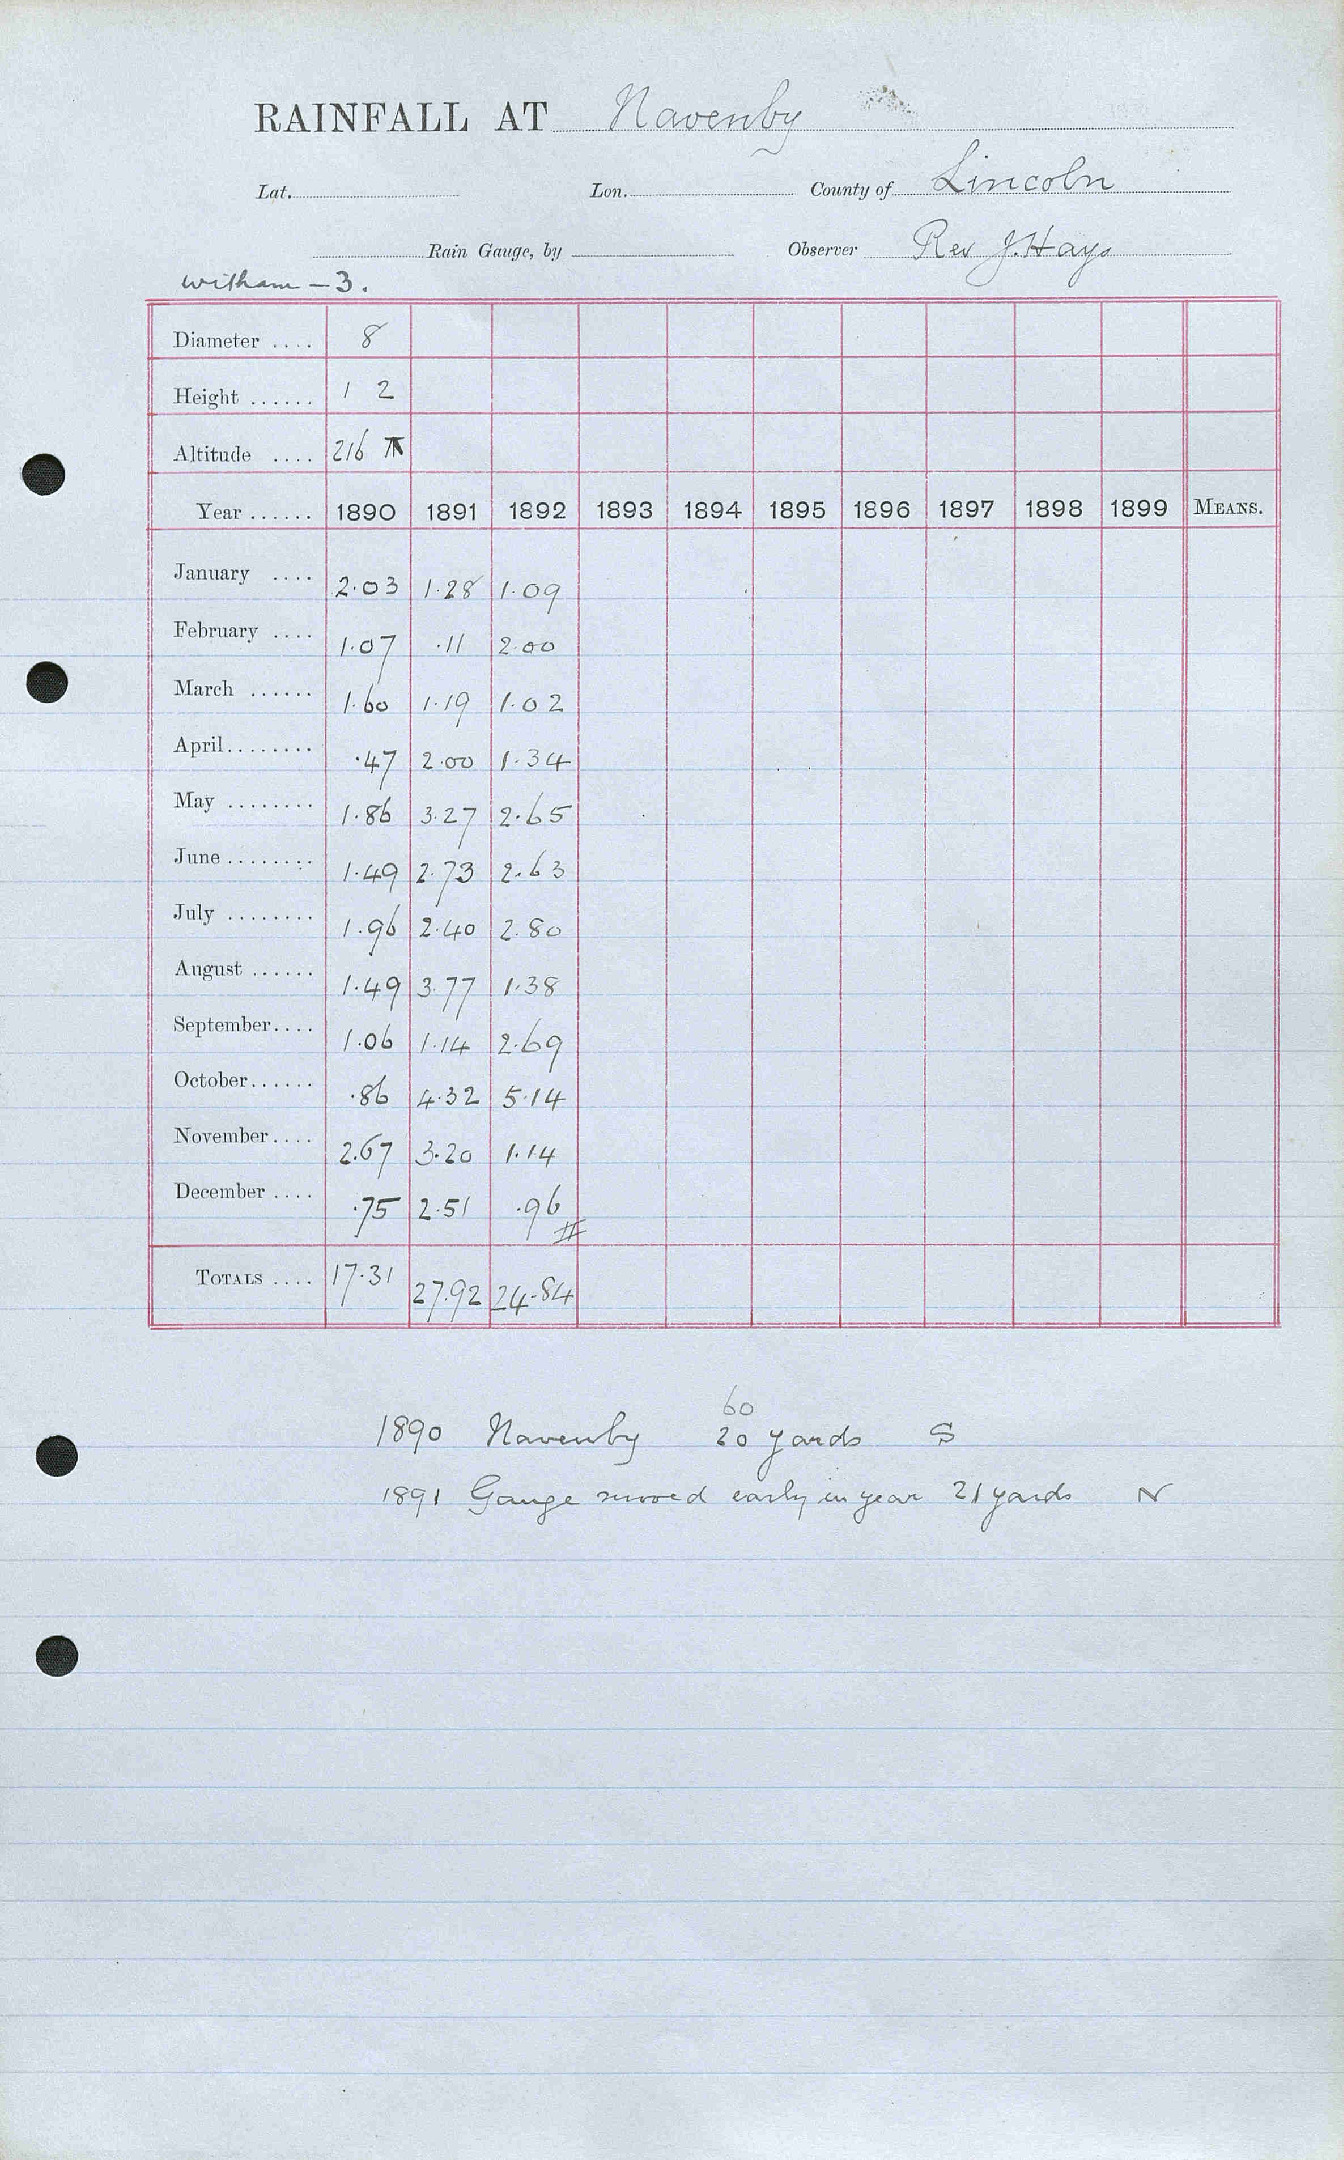 RAINFALL AT Navenby
Lat. Lon. County of Lincoln
Rain Gauge, by Observer Rev J. Hays
Witham - 3.
Diameter .... 8
Height ...... 1 2
Altitude .... 216
Year ...... 1890 1891 1892 1893 1894 1895 1896 1897 1898 1899 MEANS.
January .... 2.03 1.28 1.09
February .... 1.07 .11 2.00
March ...... 1.60 1.19 1.02
April........ .47 2.00 1.34
May ........ 1.86 3.27 2.65
June ........ 1.49 2.73 2.63
July ........ 1.96 2.40 2.80
August ...... 1.49 3.77 1.38
September.... 1.06 1.14 2.69
October...... .86 4.32 5.14
November.... 2.67 3.20 1.14
December .... .75 2.51 .96
TOTALS .... 17.31 27.92 24.84
60
1890 Navenby 20 yards S
1891 Gauge moved early in year 21 yards N